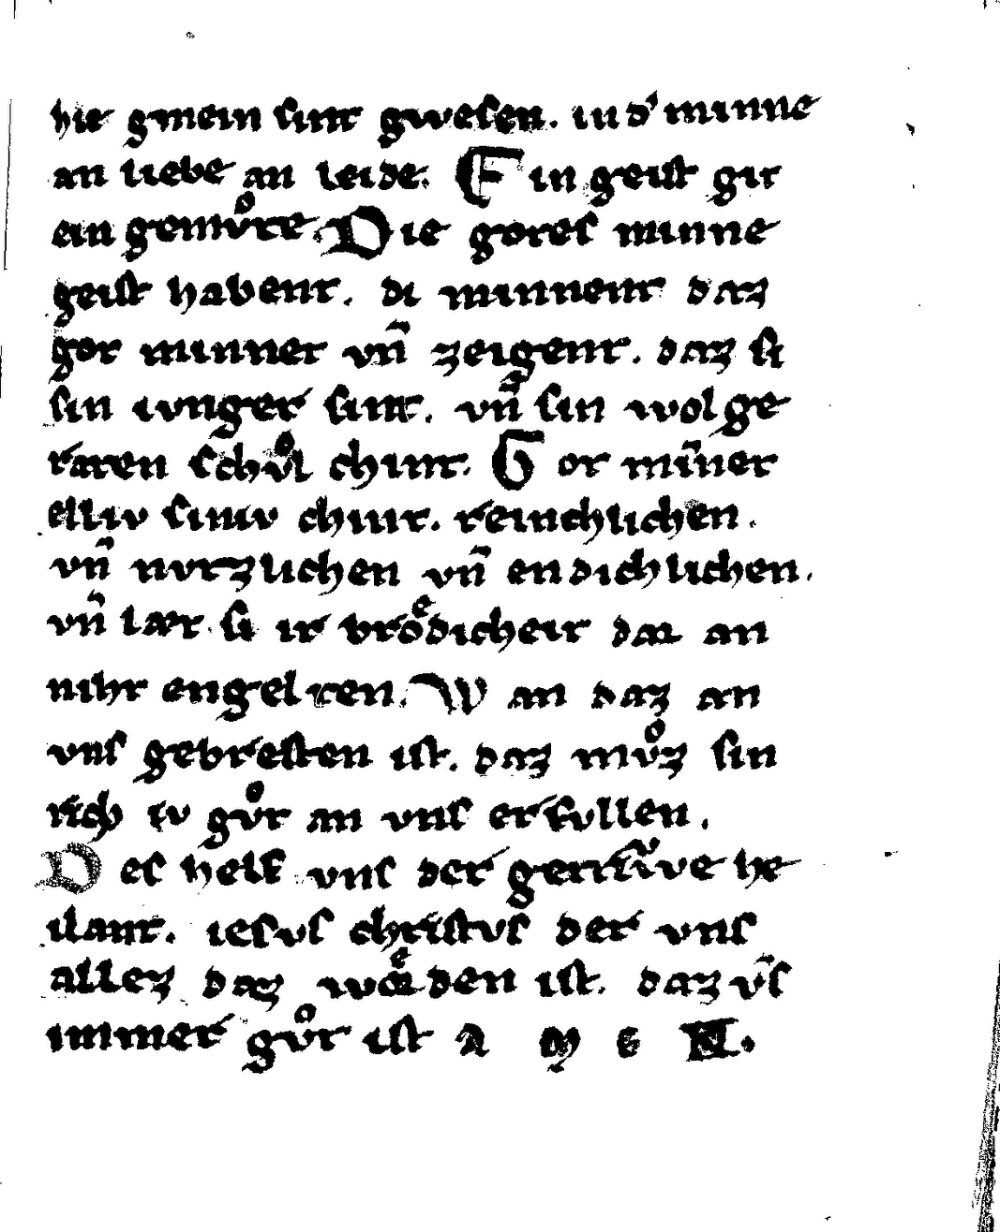 hie gmein sint gwesen. in d' minne
an liebe an leide. Ein geist git
ein gemuͦte. Die gotes minne
geist habent. di minnent daz
got minnet vn̄ zeigent. daz si
sin ivnger sint. vn̄ sin wol ge
raten schuͦl chint. Got min̄et
elliv siniv chint. reinchlichen.
vn̄ nvtzlichen vn̄ endichlichen.
vn̄ læt si ir broͤdicheit dar an
niht engelten. Wan daz an
vns gebresten ist. daz muͦz sin
rich iv guͦt an vns erfvllen.
Des helf vns der getriͮve he
ilant. iesvs christvs der vns
allez daz woͤrden ist. daz vn̄s
immer guͦt ist A M E N.